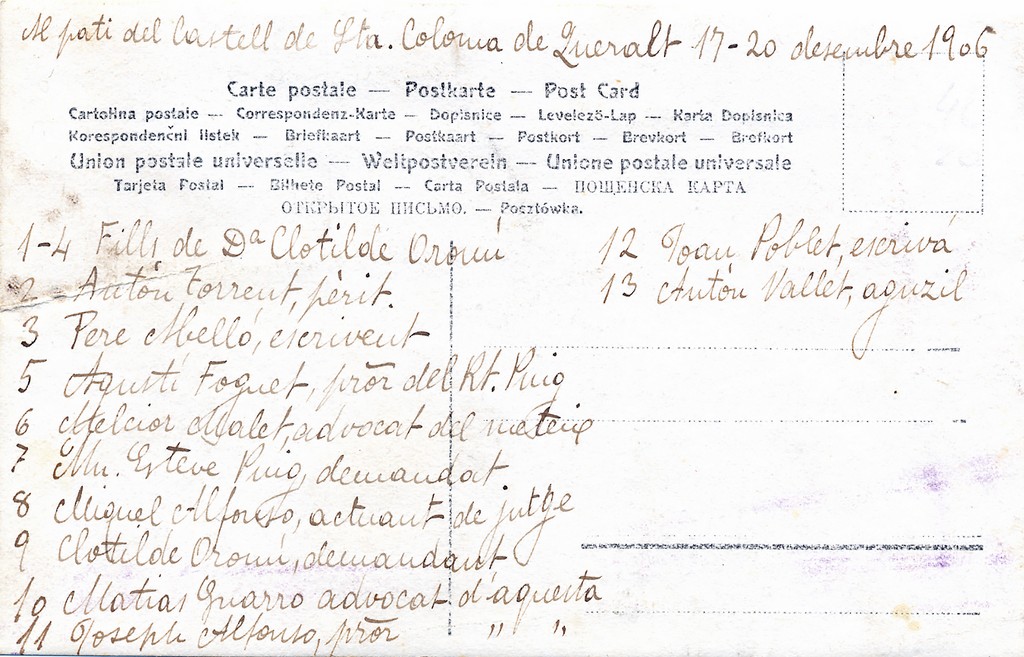 Al pati del Castell de Sta. Coloma de Queralt 17-20 desembre 1906
Carte postale — Postkarte — Post Card
Cartolina postale — Correspondenz-Karte — Dopisnice — Levelező-Lap — Karta Dopisnica
Korespondenční listek — Briefkaart — Postkaart — Postkort — Brevkort — Brefkort
Union postale universelle — Weltpostverein — Unione postale universale
Tarjeta Postal — Bilhete Postal — Carta Postala — ПОЩЕНСКА КАРТА
ОТКРЫТОЕ ПИСЬМО. — Pocztówka.
1-4 Fills de Dª Clotilde Oromí
2 Antón Torrent, pèrit.
3 Pere Melló, escrivent
5 Agustí Foguet, prōr del Rt. Puig
6 Melcior Malet, advocat del mateix
7 Mn. Esteve Puig, demandat
8 Miquel Alfonso, actuant de jutge
9 Clotilde Oromí, demandant
10 Matias Guarro advocat d'aquesta
11 Joseph Alfonso, prōr " "
12 Joan Poblet, escrivá
13 Antón Vallet, aguzil